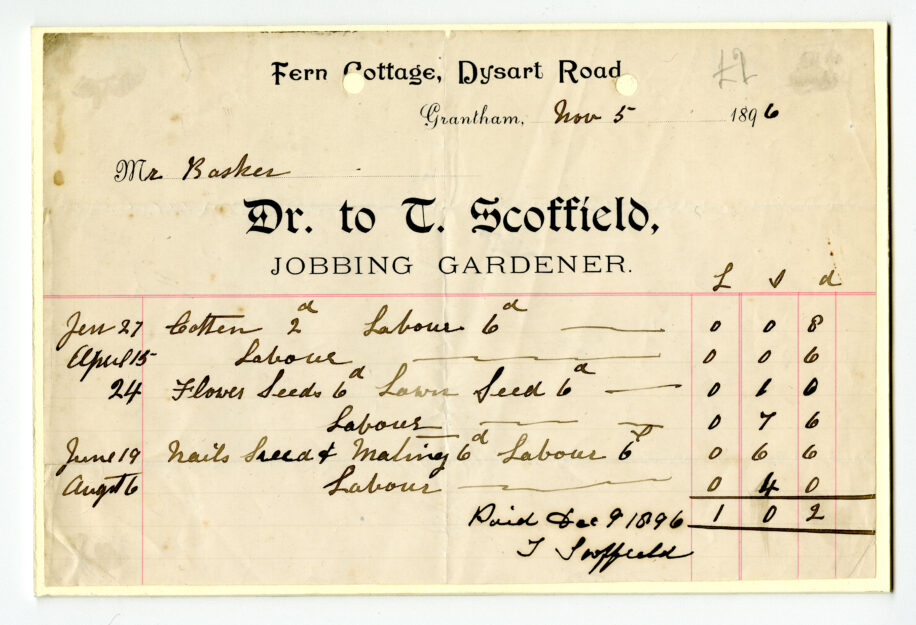 Fern Cottage, Dysart Road
Grantham, Nov 5 1896
Mr Basker
Dr. to T. Scoffield,
JOBBING GARDENER.
£ s d
Jen 27 Cotten 2d Labour 6d 0 0 8
April 15 Labour 0 0 6
24 Flower Seeds 6d Lawn Seed 6d 0 1 0
Labour 0 7 6
June 19 Nails Sreed & Mating 6d Labour 6 0 6 6
Augst 6 Labour 0 4 0
Paid Dec 9 1896 1 0 2
T Scoffield